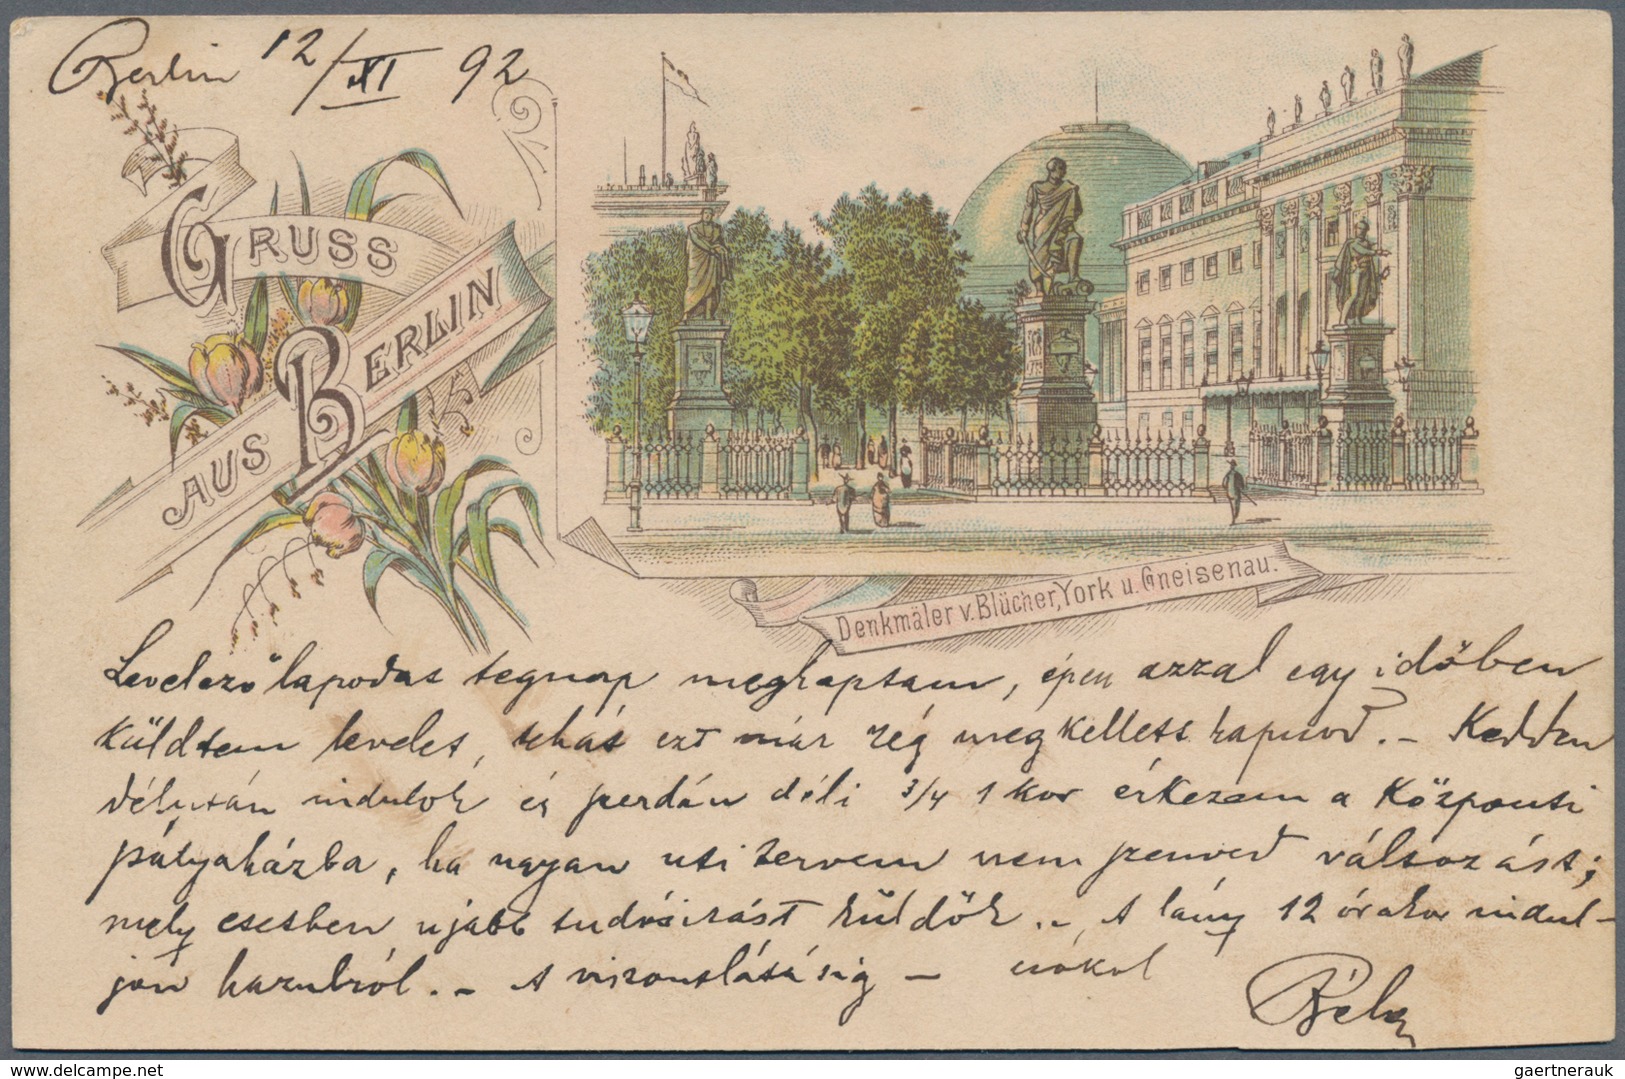 Berlin 12/XI 92
GRUSS
AUS BERLIN
Denkmäler v. Blücher, York u. Gneisenau.
Levelező lapodat tegnap megkaptam, épen azzal egy időben
küldtem levelet, tehát ezt már rég megkellett kapnod. – Kedden
délután indulok és szerdán déli 3/4 1 kor érkezem a központi
pályaházba, ha ugyan uti tervem nem szenved változást;
mely esetben ujabb tudósitást küldök. – A lány 12 órakor indul-
jon hazulról. – A viszontlátásig – csókol
Béla
www.delcampe.net
gaertnerauk